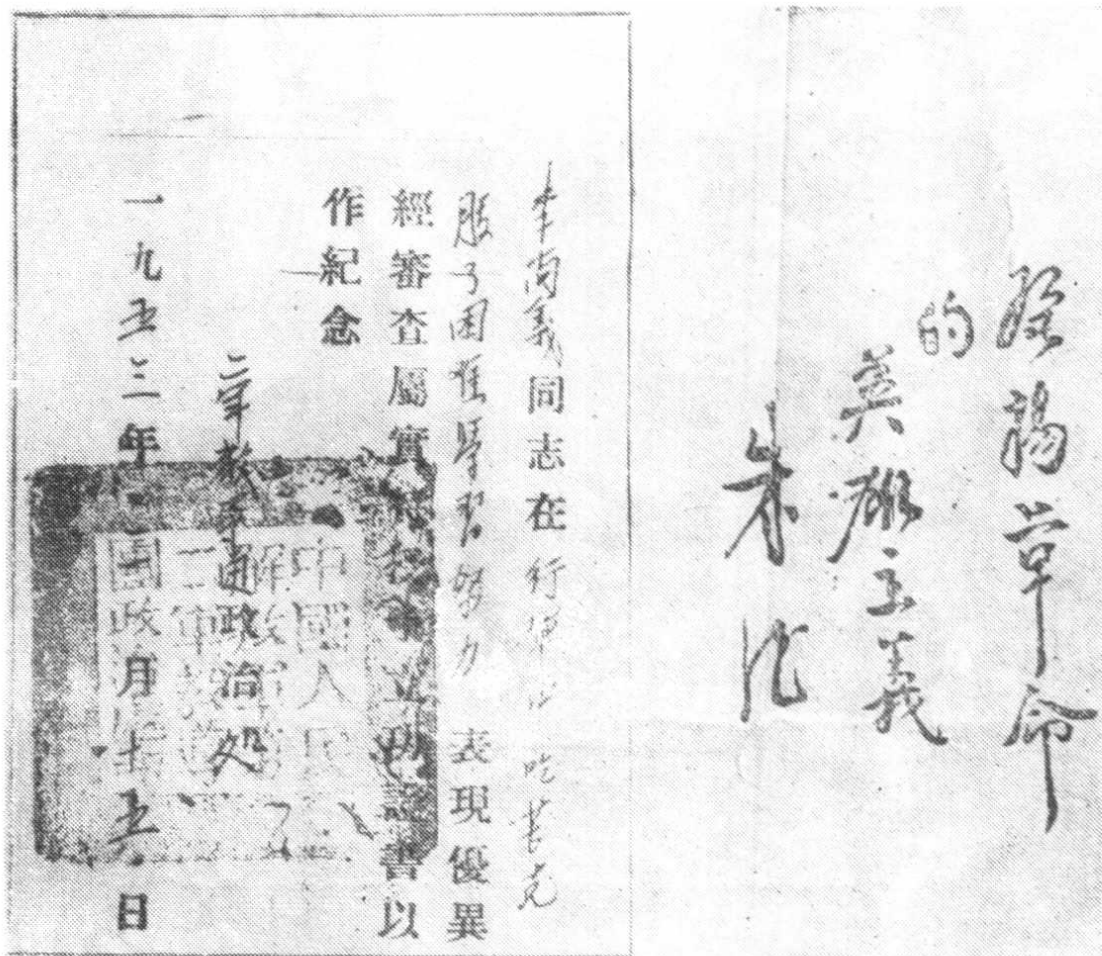 發揚革命
的
英雄主義
朱德
李尚義同志在行軍中 吃苦克
服了困难學習努力 表現優異
經審查屬實 特授予立功證書以
作紀念
政治处
一九五三年 月十五日
中國人民
解放